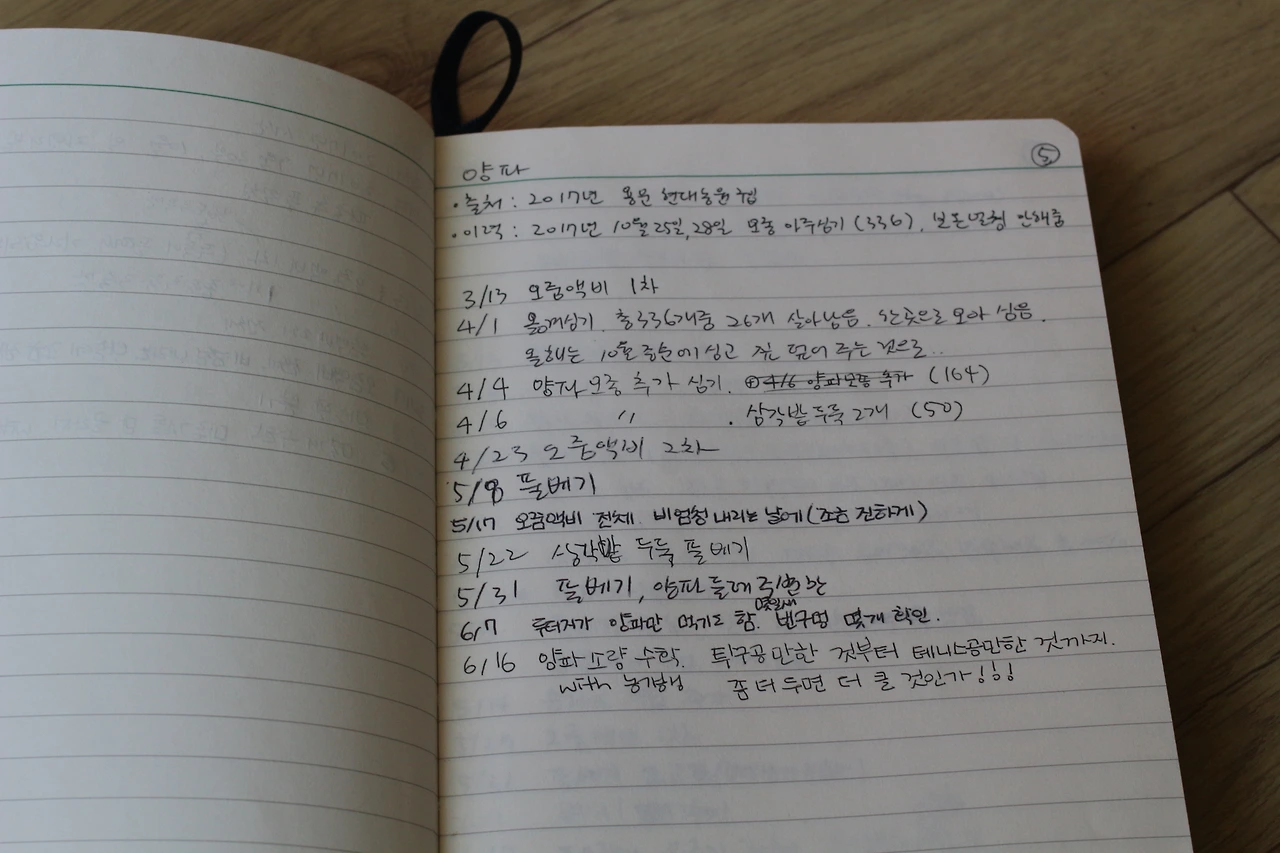 ⑤
양파
· 출처 : 2017년 용문 현대농원 구입
· 이력 : 2017년 10월 25일, 28일 모종 아주심기 (336). 보온덮청 안해줌
3/13 오줌액비 1차
4/1 옮겨심기. 총 336개중 26개 살아남음. 한 곳으로 모아 심음.
올해는 10월 중순에 심고 짚 덮어 주는 것으로..
4/4 양파모종 추가 심기. (164)
4/6 〃 . 삼각밭 두둑 2개 (50)
4/23 오줌액비 2차
5/8 풀베기
5/17 오줌액비 전체. 비 엄청 내리는 날에 (조금 진하게)
5/22 삼각밭 두둑 풀베기
5/31 풀베기, 양파 둘레 주변만
6/7 두더지가 양파만 먹기도 함. 몇일새 빈구멍 몇개 확인.
6/16 양파 소량 수확. 탁구공만한 것부터 테니스공만한 것까지.
with 좀 더 두면 더 클 것인가!!!